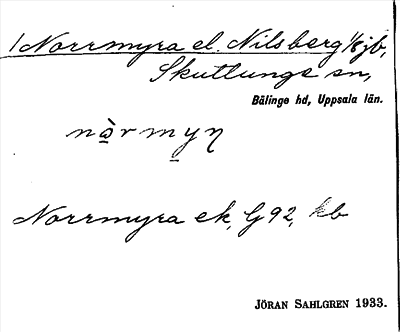 1 Norrmyra el. Nilsberg 1/8 jb,
Skutlunge sn,
Bälinge hd, Uppsala län.
nàrmyŋ
Norrmyra ek, G 92, kb
JÖRAN SAHLGREN 1933.